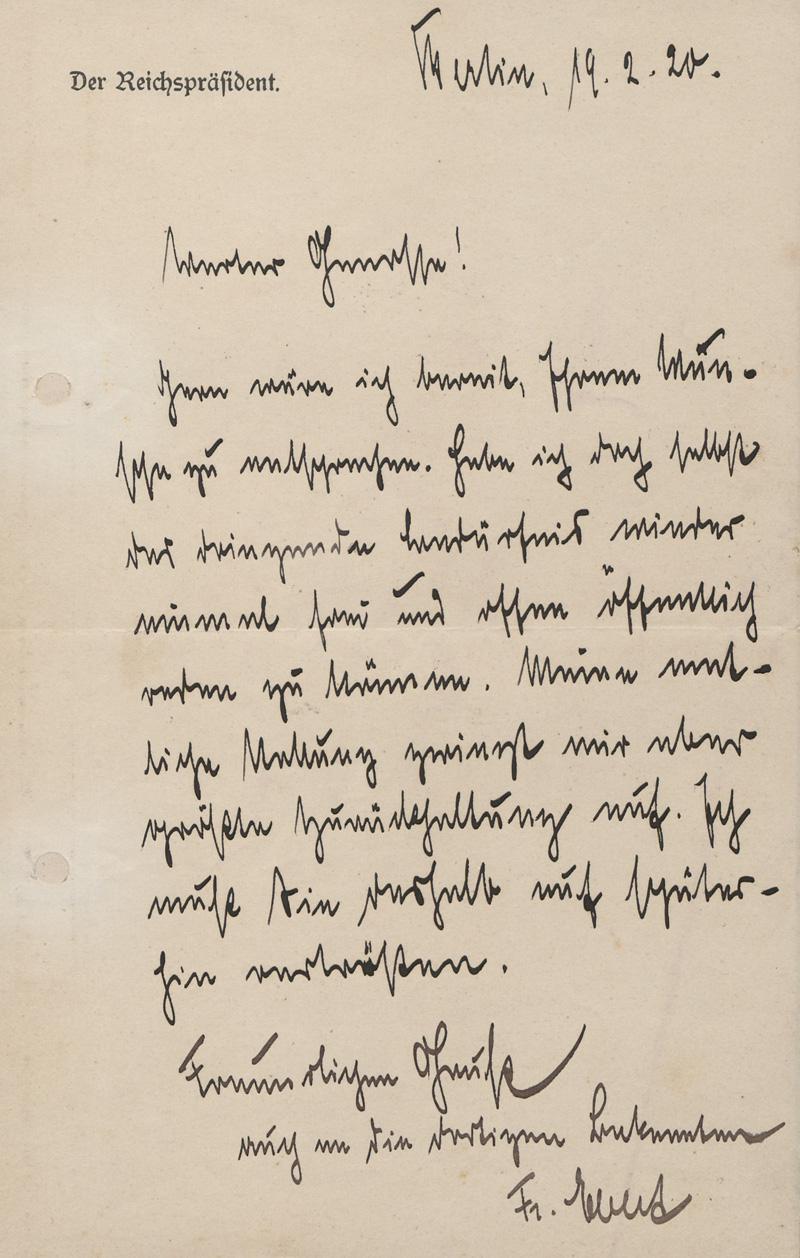 Der Reichspräsident.
Berlin, 19. 2. 20.
Werter Genosse!
Gern wäre ich bereit, Ihrem Wun-
sche zu entsprechen. Habe ich doch selbst
das dringende Bedürfnis wieder
einmal frei und offen öffentlich
reden zu können. Meine amt-
liche Stellung zwingt mir aber
größte Zurückhaltung auf. Ich
muß Sie deshalb auf später-
hin vertrösten.
Freundlichen Gruß
auch an die dortigen Bekannten
Fr. Ebert